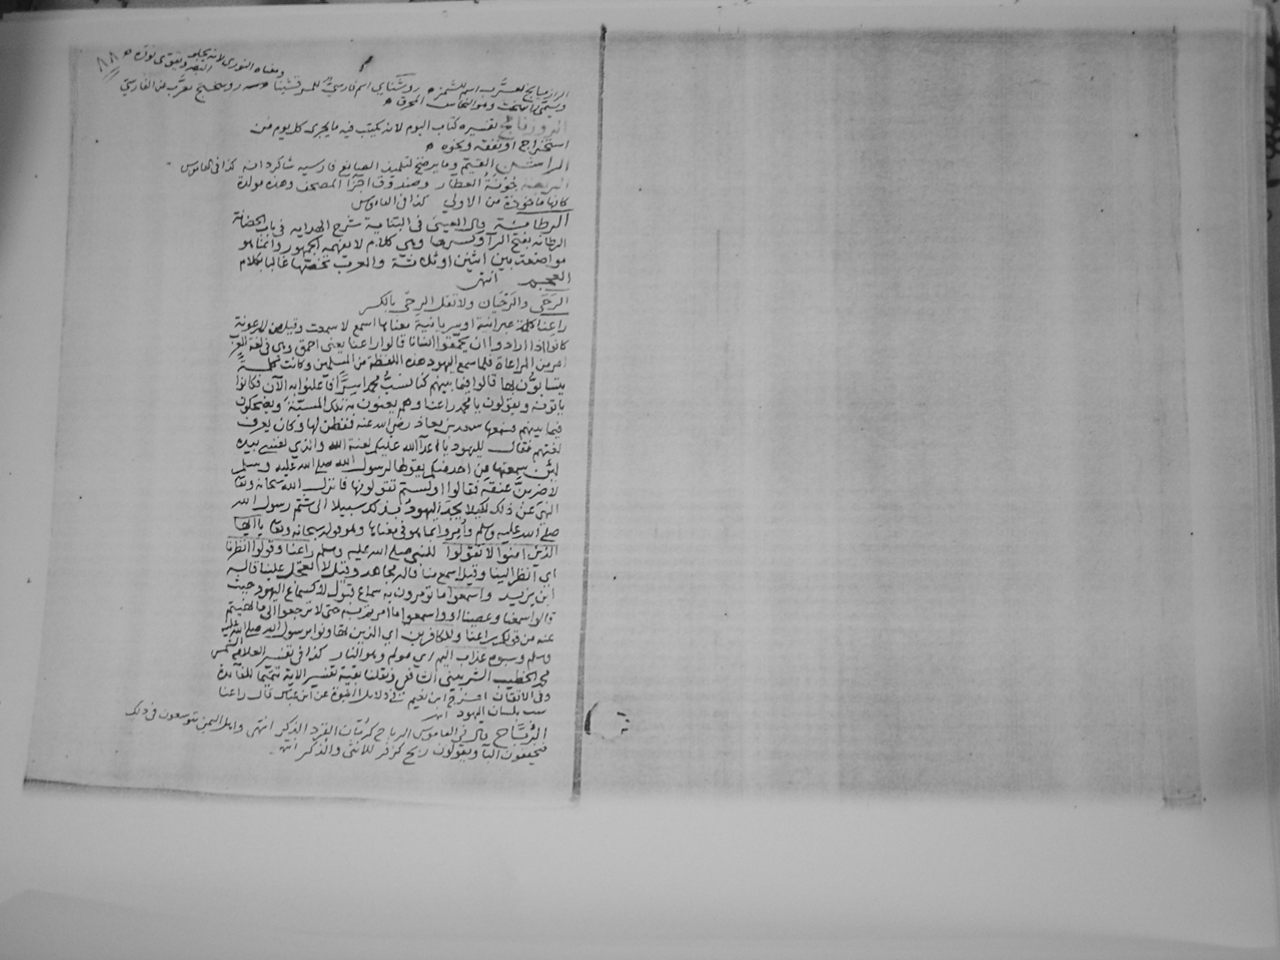 ومعناه النوري لانه يجلو البصر ويقوي نوره ٨٨
الرازيانج معرب اسم للشمر روشنايي اسم فارسي للمرقشيثا روسختج معرب من الفارسي
ويسمى راسخت وهو النحاس المحرق
الروزنامج تفسيره كتاب اليوم لانه يكتب فيه ما يجري كل يوم من
استخراج او نفقة ونحوه
الراشن المقيم وما يرضخ لتلميذ الصانع فارسيه شاكردانه كذا في القاموس
الربعة جونة العطار وصندوق اجزآ المصحف وهذه مولدة
كانها مأخوذة من الاولي كذا في القاموس
الرطانة قال العيني في البناية شرح الهداية في باب الحضانة
الرطانه بفتح الرآ وكسرها وهي كلام لا يفهمه الجمهور وانما هو
مواضعة بين اثنين او ثلاثة والعرب تخصها غالبا بكلام
العجم انتهى
الرَحَى والرَحَيان ولا تقل الرِحَى بالكسر
راعنا كلمة عبرانية او سريانية معناها اسمع لا سمعت وقيل من الرعونة
كانوا اذا ارادوا ان يحمقوا انسانا قالوا راعنا يعني احمق وهي في لغة العرب
امر من المراعاة فلما سمع اليهود هذه اللفظة من المسلمين وكانت كلمة
يتسابون بها قالوا فيما بينهم كنا نسب محمدا سرًّا فآعلنوا به الآن فكانوا
ياتونه ويقولون يا محمد راعنا وهم يعنون به تلك المسبّة ويضحكون
فيما بينهم فسمعها سعد بن معاذ رضي الله عنه ففطن لها وكان يعرف
لغتهم فقال لليهود يا اعدآ الله عليكم لعنة الله والذي نفسي بيده
لئن سمعتها من احد منكم يقولها لرسول الله صلى الله عليه وسلم
لاضربن عنقه فقالوا اولستم تقولونها فانزل الله سبحانه وتعا
النهي عن ذلك لكيلا يجد اليهود بذلك سبيلا الى شتم رسول الله
صلى الله عليه وسلم وأمروا بما هو في معناها وهو قوله سبحانه وتعا يا ايها
الذين امنوا لا تقولوا للنبي صلى الله عليه وسلم راعنا وقولوا انظرنا
اي انظر الينا وقيل اسمع منا قاله مجاهد وقيل لا تعجل علينا قاله
ابن يزيد واسمعوا ما تومرون به سماع قبول لا كسماع اليهود حيث
قالوا سمعنا وعصينا او واسمعوا ما امرتم به حتى لا ترجعوا الى ما نهيتم
عنه من قولكم راعنا وللكافرين اي الذين تهاونوا برسول الله صلى الله عليه
وسلم وسبوه عذاب اليم اي مولم وهو النار كذا في تفسير العلامة الشمس
محمد الخطيب الشربيني ونقلنا بقية تفسير الاية تتميما للفائدة
وفي الاتقان اخرج ابو نعيم في دلائل النبوة عن ابن عباس قال راعنا
سب بلسان اليهود انتهى
الرُبّاح قال في القاموس الرباح كرُمّان القرد الذكر انتهى واهل اليمن يتوسعون في ذلك
فيخففون البآ ويقولون ربح كزفر للانثى والذكر انتهى